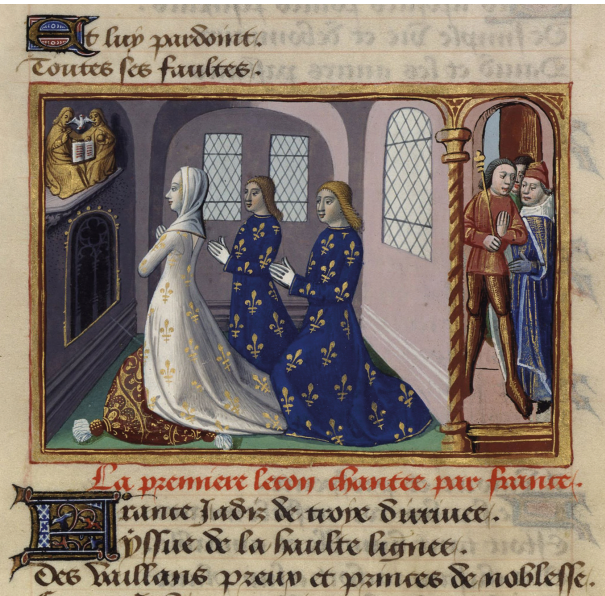 Et luy pardoint.
Toutes ses faultes.
La premiere lecon chantee par france.
France Jadiz de troye dirivee.
Yssue de la haulte lignee.
Des vaillans preux et princes de noblesse.